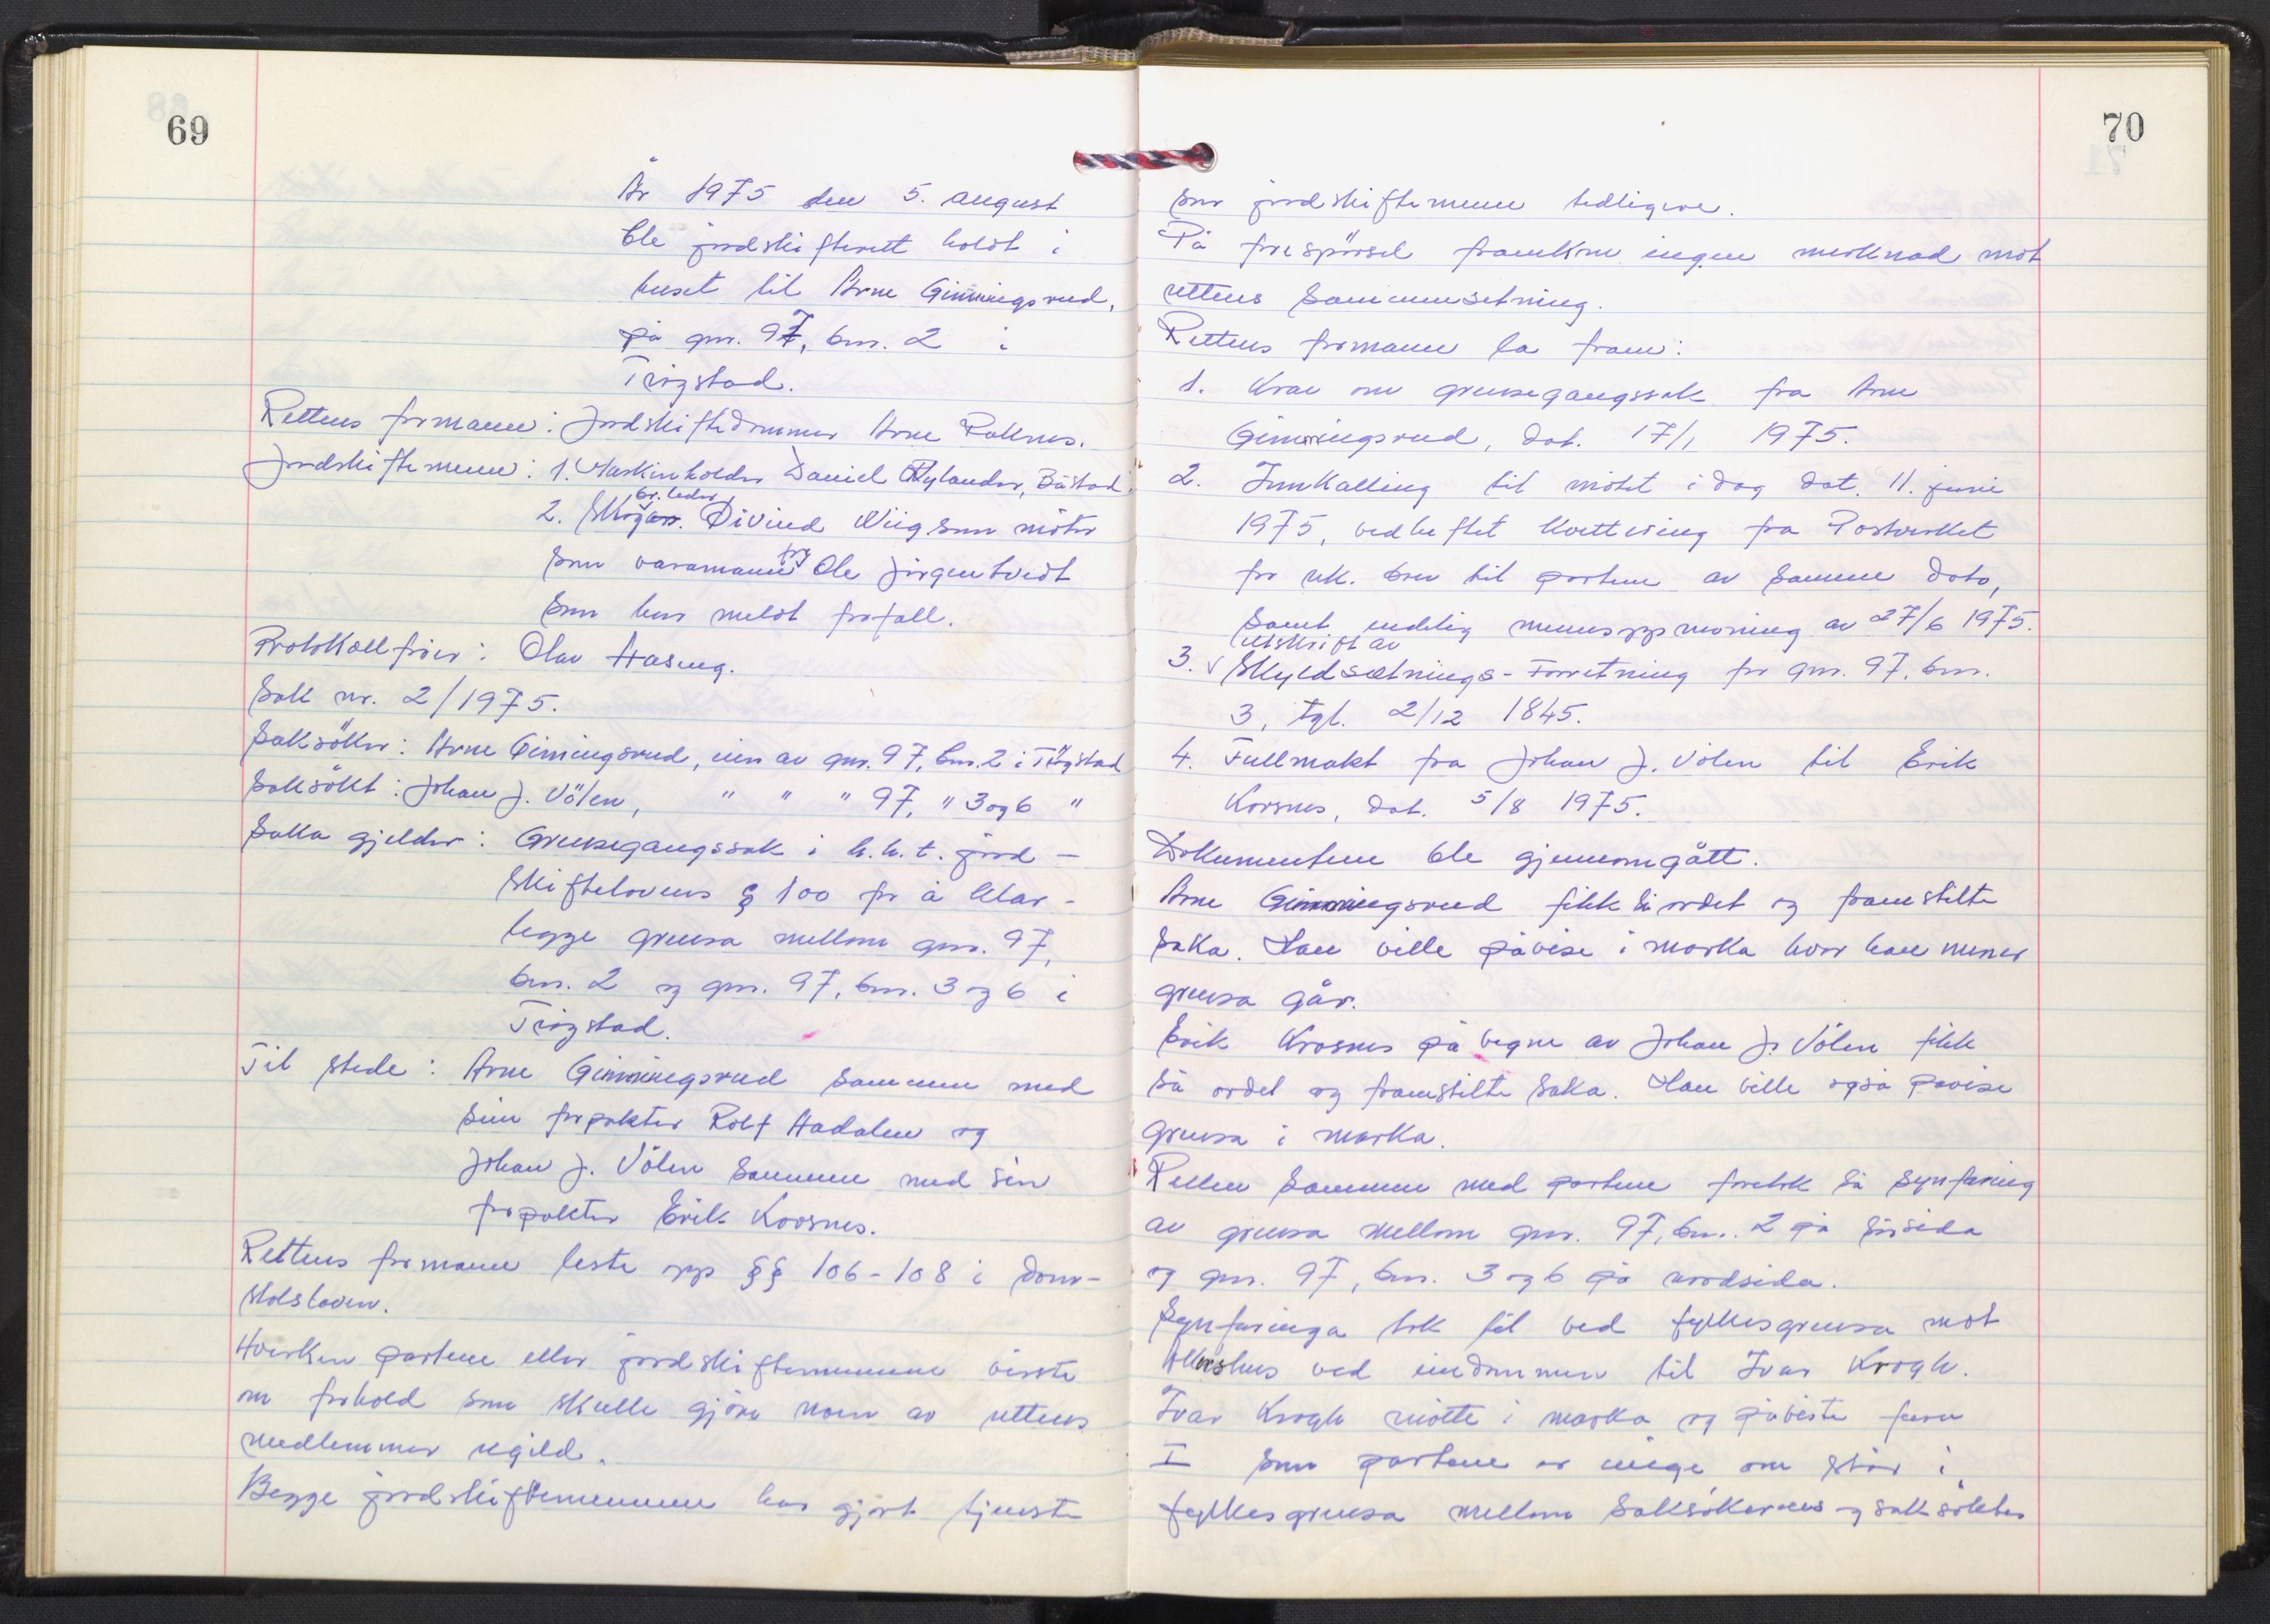 69
År 1975 den 5. august
ble jordskifterett holdt i
huset til Arne Gimmingsrud,
på gnr. 97, bnr. 2 i
Trøgstad.
Rettens formann: Jordskiftedommer Arne
Jordskiftemenn: 1. Maskinholder Daniel Nylander, Båstad.
br.leder
2. Øivind Wiig som møter
som varamann for Ole Jørgentvedt
som har meldt forfall.
Protokollfører: Olav Haseng.
Sak nr. 2/1975.
Saksöker: Arne Gimmingsrud, eier av gnr. 97, bnr. 2 i Trögstad
Saksökt: Johan J. Völen, " " " 97, " 3 og 6 "
Saka gjelder: Grensegangssak i h.h.t. jord-
skiftelovens § 100 for å klar-
legge grensa mellom gnr. 97,
bnr. 2 og gnr. 97, bnr. 3 og 6 i
Trøgstad.
Til stede: Arne Gimmingsrud sammen med
sin forpakter Rolf Hadalen og
Johan J. Völen sammen med sin
forpakter Erik Korsnes.
Rettens formann leste opp §§ 106-108 i dom-
stolsloven.
Hverken partene eller jordskiftemennene visste
om forhold som skulle gjöre noen av rettens
medlemmer ugild.
Begge jordskiftemennene har gjort tjeneste
70
som jordskiftemenn tidligere.
På forespörsel framkom ingen merknad mot
rettens sammensetning.
Rettens formann la fram:
1. Krav om grensegangssak fra Arne
Gimmingsrud, dat. 17/1 1975.
2. Innkalling til møtet i dag dat. 11. juni
1975, vedheftet kvittering fra Postverket
for rek. brev til partene av samme dato,
samt endelig mennsoppnevning av 27/6 1975.
utskrift av
3. Skyldsætnings-Forretning for gnr. 97, bnr.
3, tgl. 2/12 1845.
4. Fullmakt fra Johan J. Völen til Erik
Korsnes, dat. 5/8 1975.
Dokumentene ble gjennomgått.
Arne Gimmingsrud fikk så ordet og framstilte
saka. Han ville påvise i marka hvor han mener
grensa går.
Erik Korsnes på vegne av Johan J. Völen fikk
så ordet og framstilte saka. Han ville også påvise
grensa i marka.
Retten sammen med partene foretok så synfaring
av grensa mellom gnr. 97, bnr. 2 på sörsida
og gnr. 97, bnr. 3 og 6 på nordsida.
Synfaringa tok til ved fylkesgrensa mot
Akershus ved eiendommen til Ivar Krogh.
Ivar Krogh møtte i marka og påviste furu
I som partene er enige om står i
fylkesgrensa mellom saksökerens og saksöktes